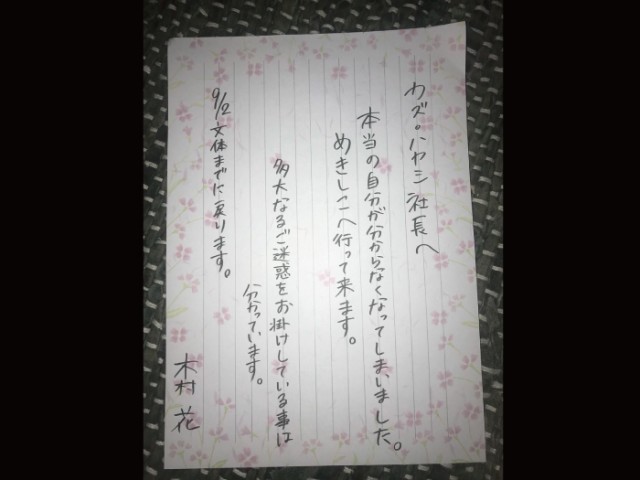 カズ・ハヤシ社長へ
本当の自分が分からなくなってしまいました。
めきしこへ行って来ます。
多大なるご迷惑をお掛けしている事は
分かっています。
9/2文体までに戻ります。
木村 花